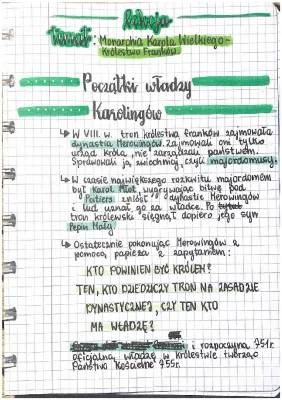 Lekcja
Temat: Monarchia Karola Wielkiego-
Królestwo Franków
Początki władzy
Karolingów
↳ W VIII. w. tron królestwa franków zajmowała
dynastia Merowingów. Zajmowali oni tylko
urząd króla, nie zarządzali państwem.
Sprawowali ją zwierzchnicy, czyli majordomusy.
↳ W czasie największego rozkwitu majordomem
był Karol Młot, wygrywając bitwę pod
Poitiers zniósł dynastię Merowingów
i lud uznał go za władcę. Po
tron królewski sięgnął dopiero jego syn
Pepin Mały
↳ Ostatecznie pokonując Merowingów z
pomocą papieża z zapytaniem:
KTO POWINIEN BYĆ KRÓLEM?
TEN, KTO DZIEDZICZY TRON NA ZASADZIE
DYNASTYCZNEJ, CZY TEN KTO
MA WŁADZĘ?
i rozpoczyna 751r.
oficjalną władzę w królestwie tworząc
Państwo Kościelne 755r.